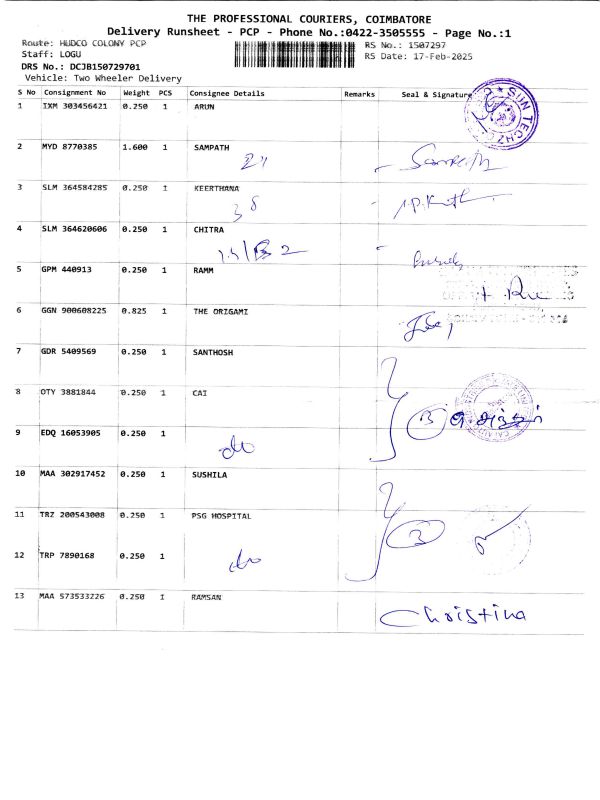 THE PROFESSIONAL COURIERS, COIMBATORE
Delivery Runsheet - PCP - Phone No.:0422-3505555 - Page No.:1
Route: HUDCO COLONY PCP
RS No.: 1507297
Staff: LOGU
RS Date: 17-Feb-2025
DRS No.: DCJB150729701
Vehicle: Two Wheeler Delivery
S No Consignment No Weight PCS Consignee Details Remarks Seal & Signature
1 IXM 303456421 0.250 1 ARUN
SUN TECHZ
2 MYD 8770385 1.600 1 SAMPATH
Sampath
3 SLM 364584285 0.250 1 KEERTHANA
38
4 SLM 364620606 0.250 1 CHITRA
5 GPM 440913 0.250 1 RAMM
6 GGN 900608225 0.825 1 THE ORIGAMI
7 GDR 5409569 0.250 1 SANTHOSH
8 OTY 3881844 0.250 1 CAI
3
9 EDQ 16053905 0.250 1
do
10 MAA 302917452 0.250 1 SUSHILA
11 TRZ 200543008 0.250 1 PSG HOSPITAL
3
12 TRP 7890168 0.250 1
do
13 MAA 573533226 0.250 1 RAMSAN
Christina